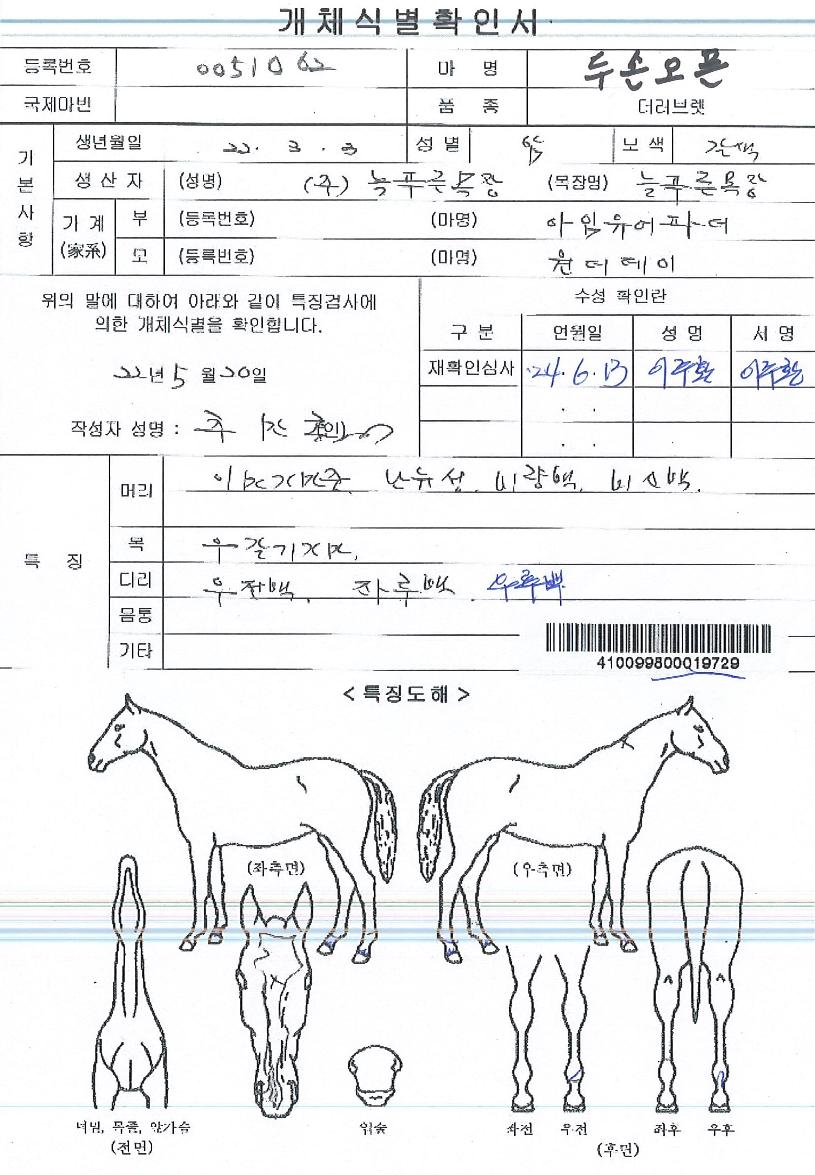 개체식별확인서
등록번호 0051062 마 명 두손오픈
국제마빈 품 종 더러브렛
기본사항
생년월일 22. 3. 3 성 별 암 보 색 갈색
생 산 자 (성명) (주) 늘푸른목장 (목장명) 늘푸른목장
가 계 (家系) 부 (등록번호) (마명) 아임유어파더
모 (등록번호) (마명) 원더데이
위의 말에 대하여 아래와 같이 특징검사에
의한 개체식별을 확인합니다.
22년 5 월 20일
작성자 성명 :
수성 확인란
구 분 연월일 성 명 서 명
재확인심사 '24. 6. 13 이주환 이주환
. .
. .
특 징
머리 난유성. 비량백. 비소백.
목 우
다리 우전백. 좌후백. 우후백
몸통
기타
410099800019729
< 특징도해 >
(좌측면) (우측면)
너빔, 목줄, 앞가슴
(전면)
입술
좌전 우전 좌후 우후
(후면)